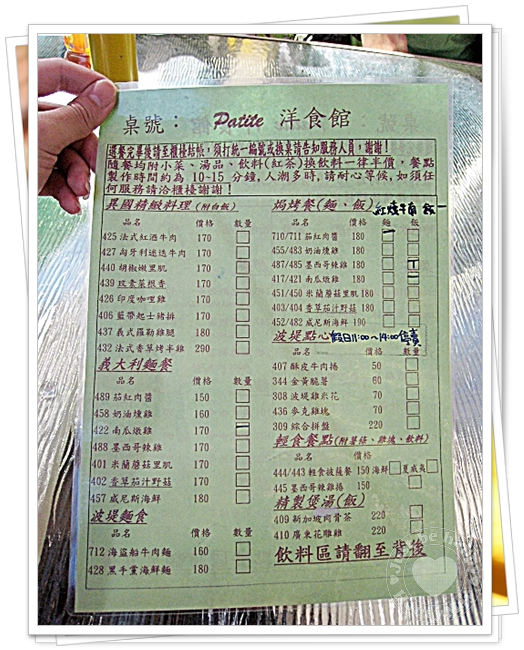 桌號： Patite 洋食館
選餐完畢後請至櫃檯結帳，須打統一編號或換桌請告知服務人員，謝謝！
隨餐均附小菜、湯品、飲料(紅茶)換飲料一律半價，餐點
製作時間約為 10-15 分鐘,人潮多時,請耐心等候,如須任
何服務請洽櫃檯謝謝！
異國精緻料理(附白飯)
品名 價格 數量
425 法式紅酒牛肉 170
427 匈牙利迷迭牛肉 170
440 胡椒嫩里肌 170
439 玫素菜根香 170
426 印度咖哩雞 170
406 藍帶起士豬排 170
437 義式羅勒雞腿 180
432 法式香草烤半雞 290
義大利麵餐
品名 價格 數量
489 茄紅肉醬 150
458 奶油燻雞 160
422 南瓜燉雞 170
488 墨西哥辣雞 170
401 米蘭蘑菇里肌 170
402 香草茄汁野菇 170
457 威尼斯海鮮 180
波堤麵食
品名 價格 數量
712 海盜船牛肉麵 160
428 黑手黨海鮮麵 180
焗烤餐(麵、飯) 紅燒牛南 飯一
品名 價格 麵 飯
710/711 茄紅肉醬 180
455/483 奶油燻雞 180
487/485 墨西哥辣雞 180
417/421 南瓜燉雞 180
451/450 米蘭蘑菇里肌 180
403/404 香草茄汁野菇 180
452/482 威尼斯海鮮 190
波堤點心 假日11:00～14:00售賣
品名 價格 數量
407 酥皮牛肉捲 50
344 金黃脆薯 60
308 波堤雞米花 70
436 麥克雞塊 70
309 綜合拼盤 220
輕食餐點(附薯條、雞塊、飲料)
444/443 輕食披薩餐 150 海鮮 夏威夷
445 墨西哥辣雞捲 150
精製煲湯(飯)
409 新加坡肉骨茶 220
410 廣東花雕雞 220
飲料區請翻至背後